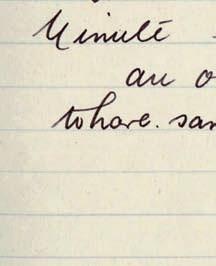 Minute -
an o
to have. san